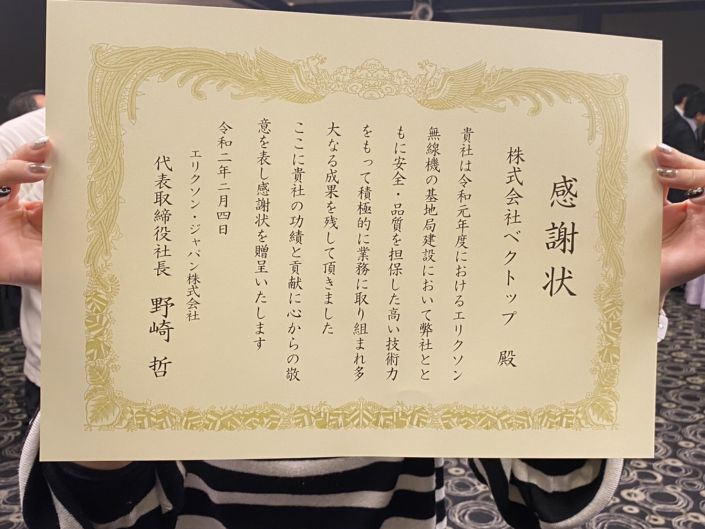 感謝状
株式会社ベクトップ 殿
貴社は令和元年度におけるエリクソン
無線機の基地局建設において弊社とと
もに安全・品質を担保した高い技術力
をもって積極的に業務に取り組まれ多
大なる成果を残して頂きました
ここに貴社の功績と貢献に心からの敬
意を表し感謝状を贈呈いたします
令和二年二月四日
エリクソン・ジャパン株式会社
代表取締役社長 野崎 哲